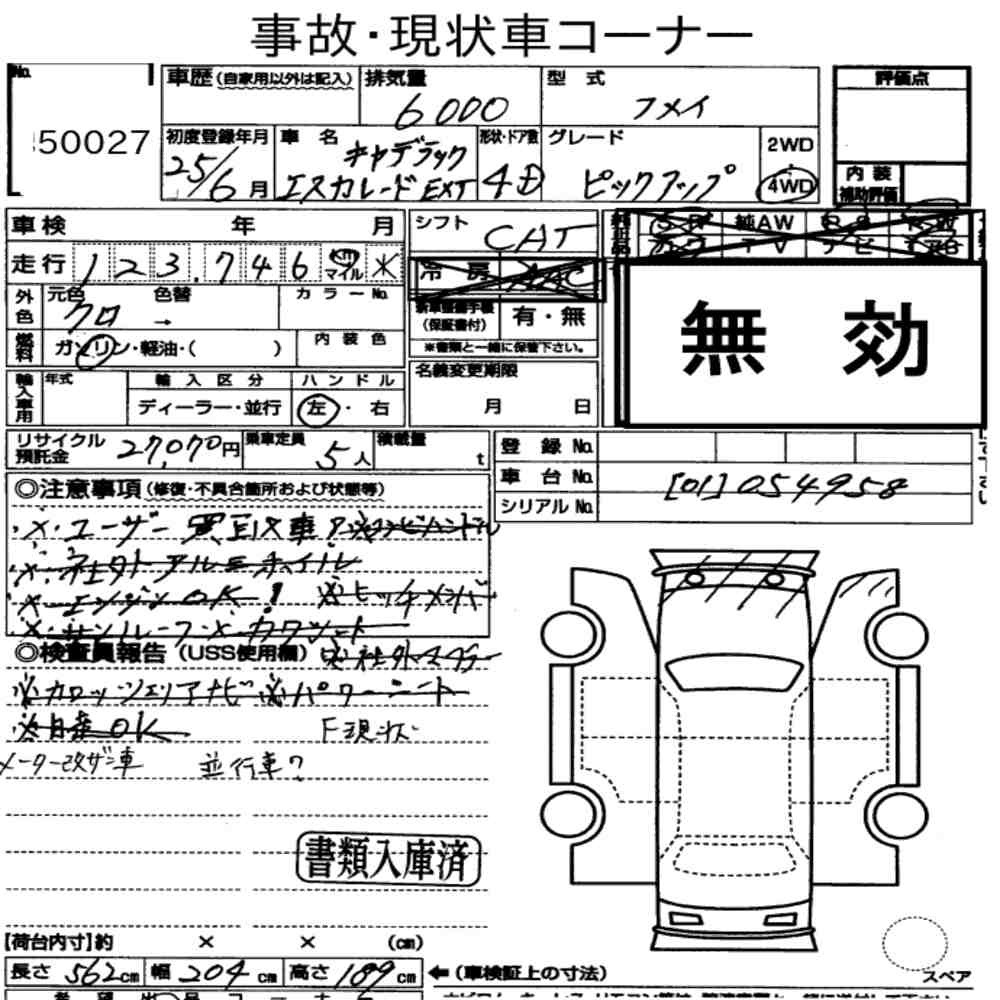 事故・現状車コーナー
No.
50027
車歴(自家用以外は記入)
排気量
6000
型式
フメイ
評価点
初度登録年月
25/6月
車名
キャデラック
エスカレードEXT
形状・ドア数
4D
グレード
ピックアップ
2WD
4WD
内装
補助評価
車検 年 月
シフト
CAT
純正品
S R 純AW P S P W
カワ T V ナビ
走行 123.746 km マイル ※
冷房 AAC
無効
外色
元色 色替 カラーNo.
クロ →
新車整備手帳
(保証書付)
有・無
※書類と一緒に保管下さい。
燃料
ガソリン・軽油・( )
内装色
輸入車用
年式
輸入区分
ハンドル
ディーラー・並行
左・右
名義変更期限
月 日
リサイクル
預託金
27,070円
乗車定員
5人
積載量
t
登録No.
車台No.
[01]054958
シリアルNo.
◎注意事項(修復・不具合箇所および状態等)
・※・ユーザー買取車!
・※・社外アルミホイル
・※・エンジンOK! ※ヒッチメンバ
・※・サンルーフ・※
◎検査員報告(USS使用欄) ※社外マフラー
※カロッツエリアナビ ※パワーシート
F現状
メーター改ザン車 並行車?
書類入庫済
【荷台内寸】約 × × (cm)
長さ 562cm 幅 204cm 高さ 189cm
←(車検証上の寸法)
スペア